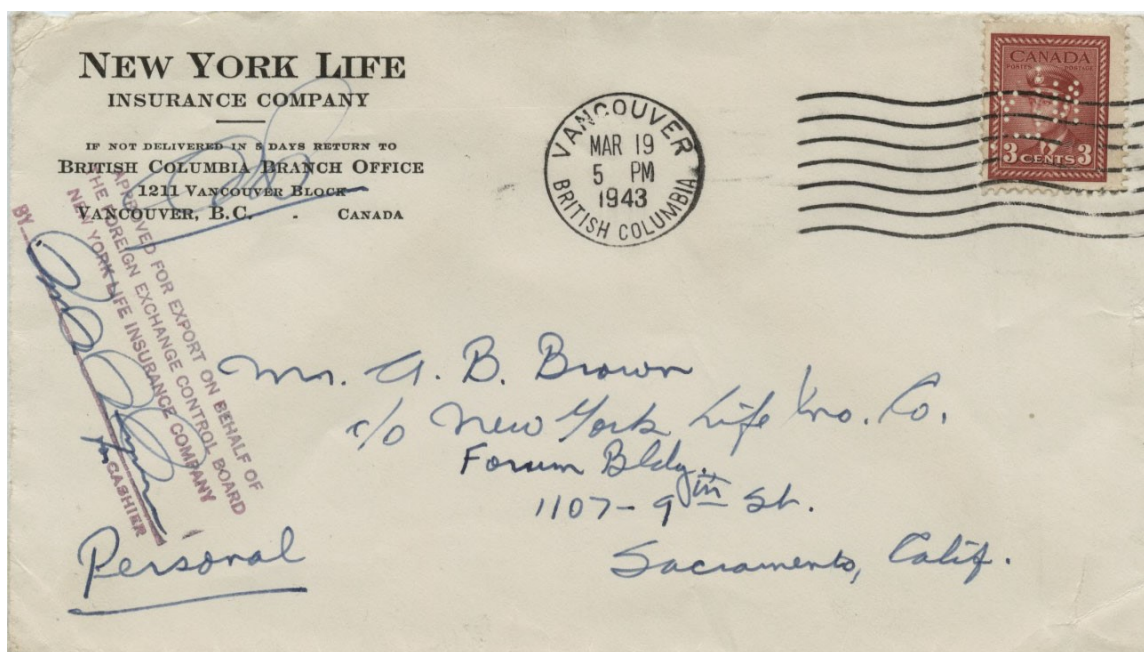 NEW YORK LIFE
INSURANCE COMPANY
IF NOT DELIVERED IN 5 DAYS RETURN TO
BRITISH COLUMBIA BRANCH OFFICE
1211 VANCOUVER BLOCK
VANCOUVER, B.C. - CANADA
VANCOUVER
MAR 19
5 PM
1943
BRITISH COLUMBIA
CANADA
POSTES POSTAGE
3 CENTS 3
APPROVED FOR EXPORT ON BEHALF OF
THE FOREIGN EXCHANGE CONTROL BOARD
NEW YORK LIFE INSURANCE COMPANY
BY
for CASHIER
Mr. A. B. Brown
c/o New York Life Ins. Co.
Forum Bldg.
1107 - 9th St.
Sacramento, Calif.
Personal